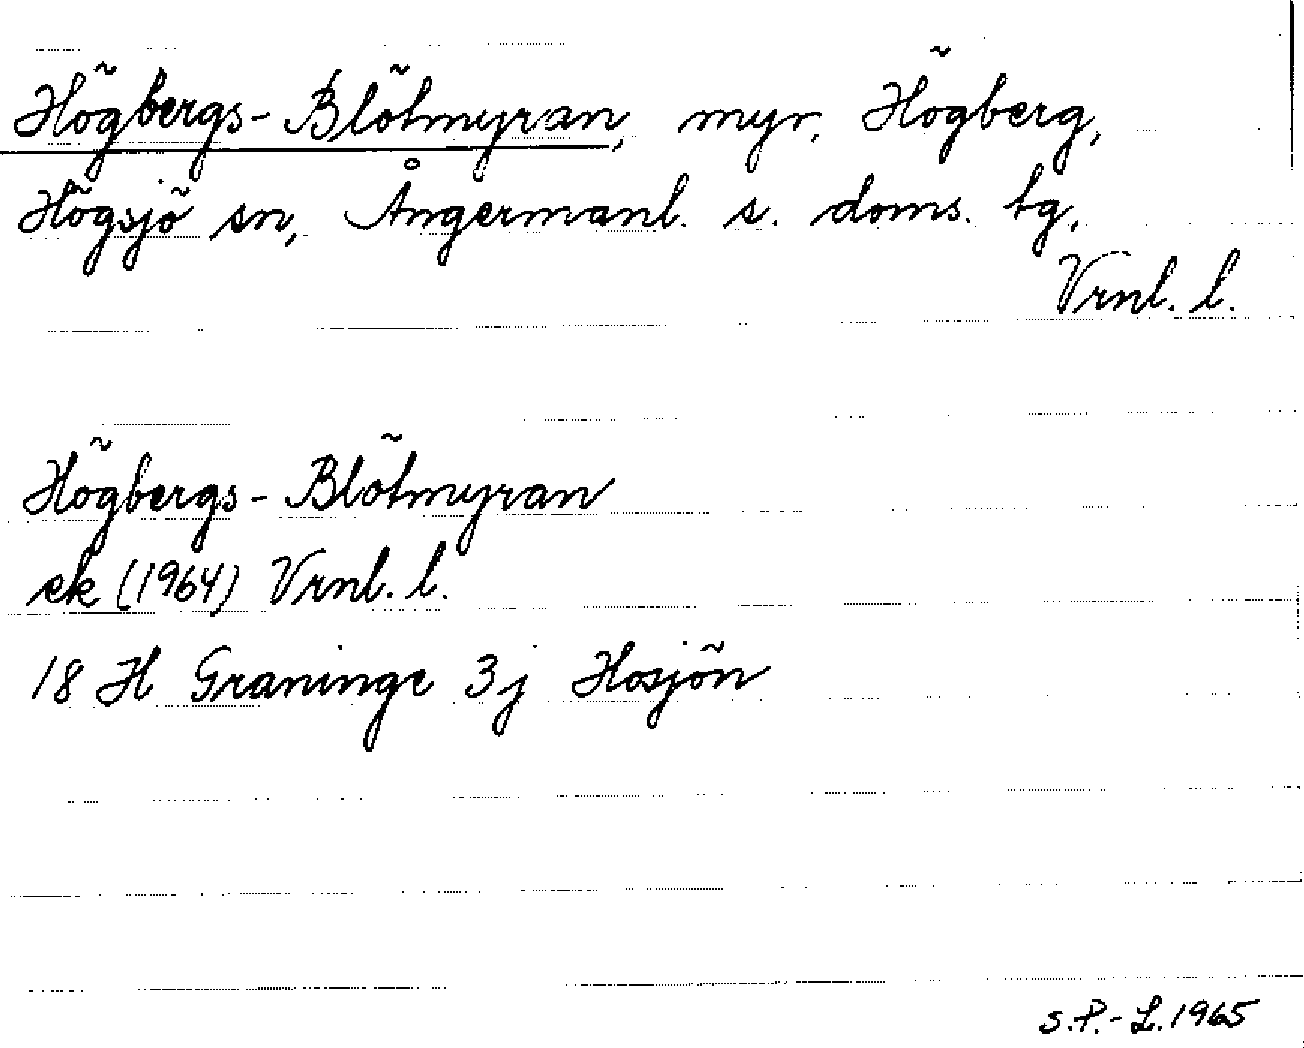 Högbergs-Blötmyran, myr, Högberg,
Högsjö sn, Ångermanl. s. doms. tg,
Vrnl. l.
Högbergs-Blötmyran
ek (1964) Vrnl. l.
18 H Graninge 3j Hosjön
S.P.-L. 1965